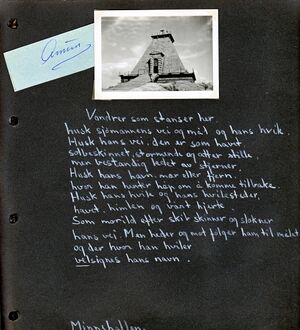 Vandrer som stanser her,
husk sjømannens vei og mål og hans hvile.
Husk hans vei, den er som havet
solbeskinnet, stormende og atter stille,
men bestandig ledet av stjerner.
Husk hans havn, nær eller fjern,
hvor han henter håp om å komme tilbake.
Husk hans hvile og hans hvilesteder,
havet, himlen og vårt hjerte
Som morild efter skib skinner og slokner
hans vei. Men heder og mot følger ham til målet
og der hvor han hviler
velsignes hans navn.
Minnehallen.